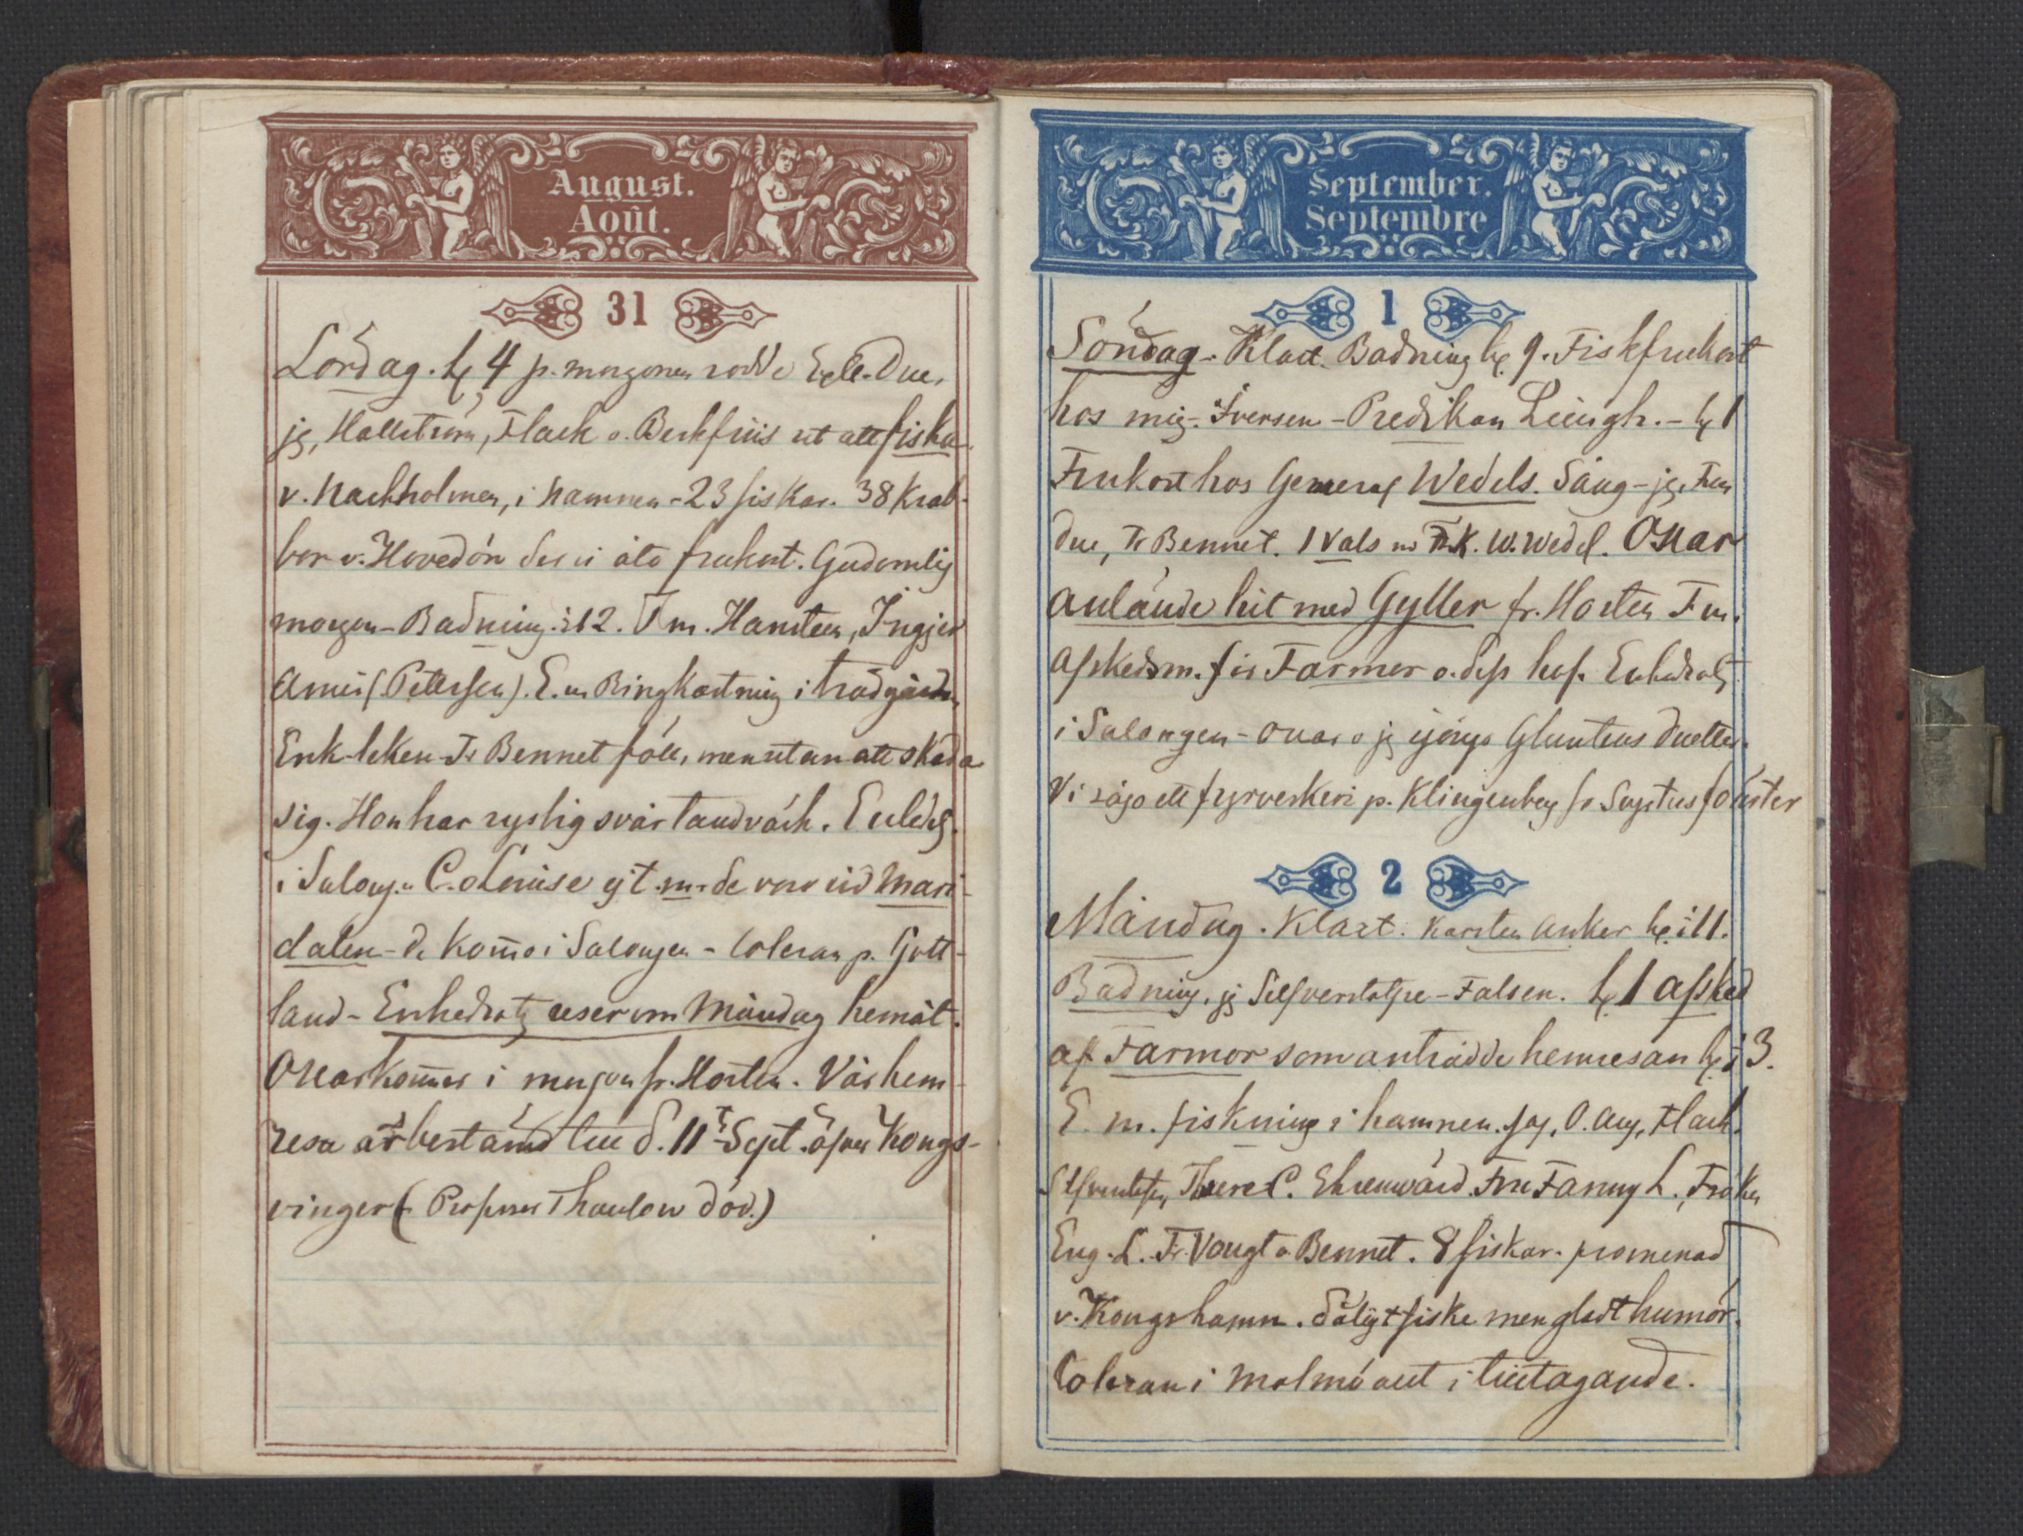 August.
Août.
31
Lördag. kl 4 p. morgonen rodde Due,
jg, Hallström, Flach o. Beckfriis ut att fiska
v. Nackholmen, i hamnen - 23 fiskar. 38 Krab-
bor v. Hovedön der vi åto frukost. Gudomlig
morgon - Badning. i 12. F m. Hansteen, Ingjer
(Petersen). E. m Ringkastning i trädgårdn.
Enk-leken Fr Bennet föll, men utan att skada
sig. Hon har ryslig svår tandvärk. Enledg.
i Salong. C. o Louise ej t. m - de voro vid Mari-
dalen - de kom̄o i Salongen - Coleran p. Gott-
land - Enkedrotg reser om Måndag hemåt.
Oscar kom̄er i morgon fr. Horten. Vår hem-
resa är bestämd till d. 11 Sept. öfver Kongs-
vinger (Professor Thaulow död.)
September.
Septembre
1
Söndag. Klart. Badning kl 9. Fiskfrukost
hos mig - Iversen - Predikan Ljungh. - kl 1
Frukost hos General Wedels. Sång - jg, Fru
Due, Fr Bennet. 1 Vals m Fr.K. W. Wedel. Oscar
anlände hit med Gyller fr. Horten F m.
Afskedsm. för Farmor o. dess hof. Enkedrotg
i Salongen - Oscar o jg sjöngo Gluntens duetter.
Vi sågo ett fyrverkeri p. Klingenberg fr fönster
2
Måndag. Klart. Karsten Anker kl. i 11.
Badning, jg Silfverstolpe - Falsen. kl 1 afsked
af Farmor som anträdde hemresan kl i 3.
E. m. fiskning i hamnen. Jag, O. Aug, Flach.
Silfverstolpe, C. Ehrenswärd Fru Fanny L., Fröken
Eug. L. Fr. Vougt o Bennet. 8 fiskar. promenad
v. Kongshamn. dåligt fiske men gladt humör.
Coleran i Malmö ant i tilltagande.